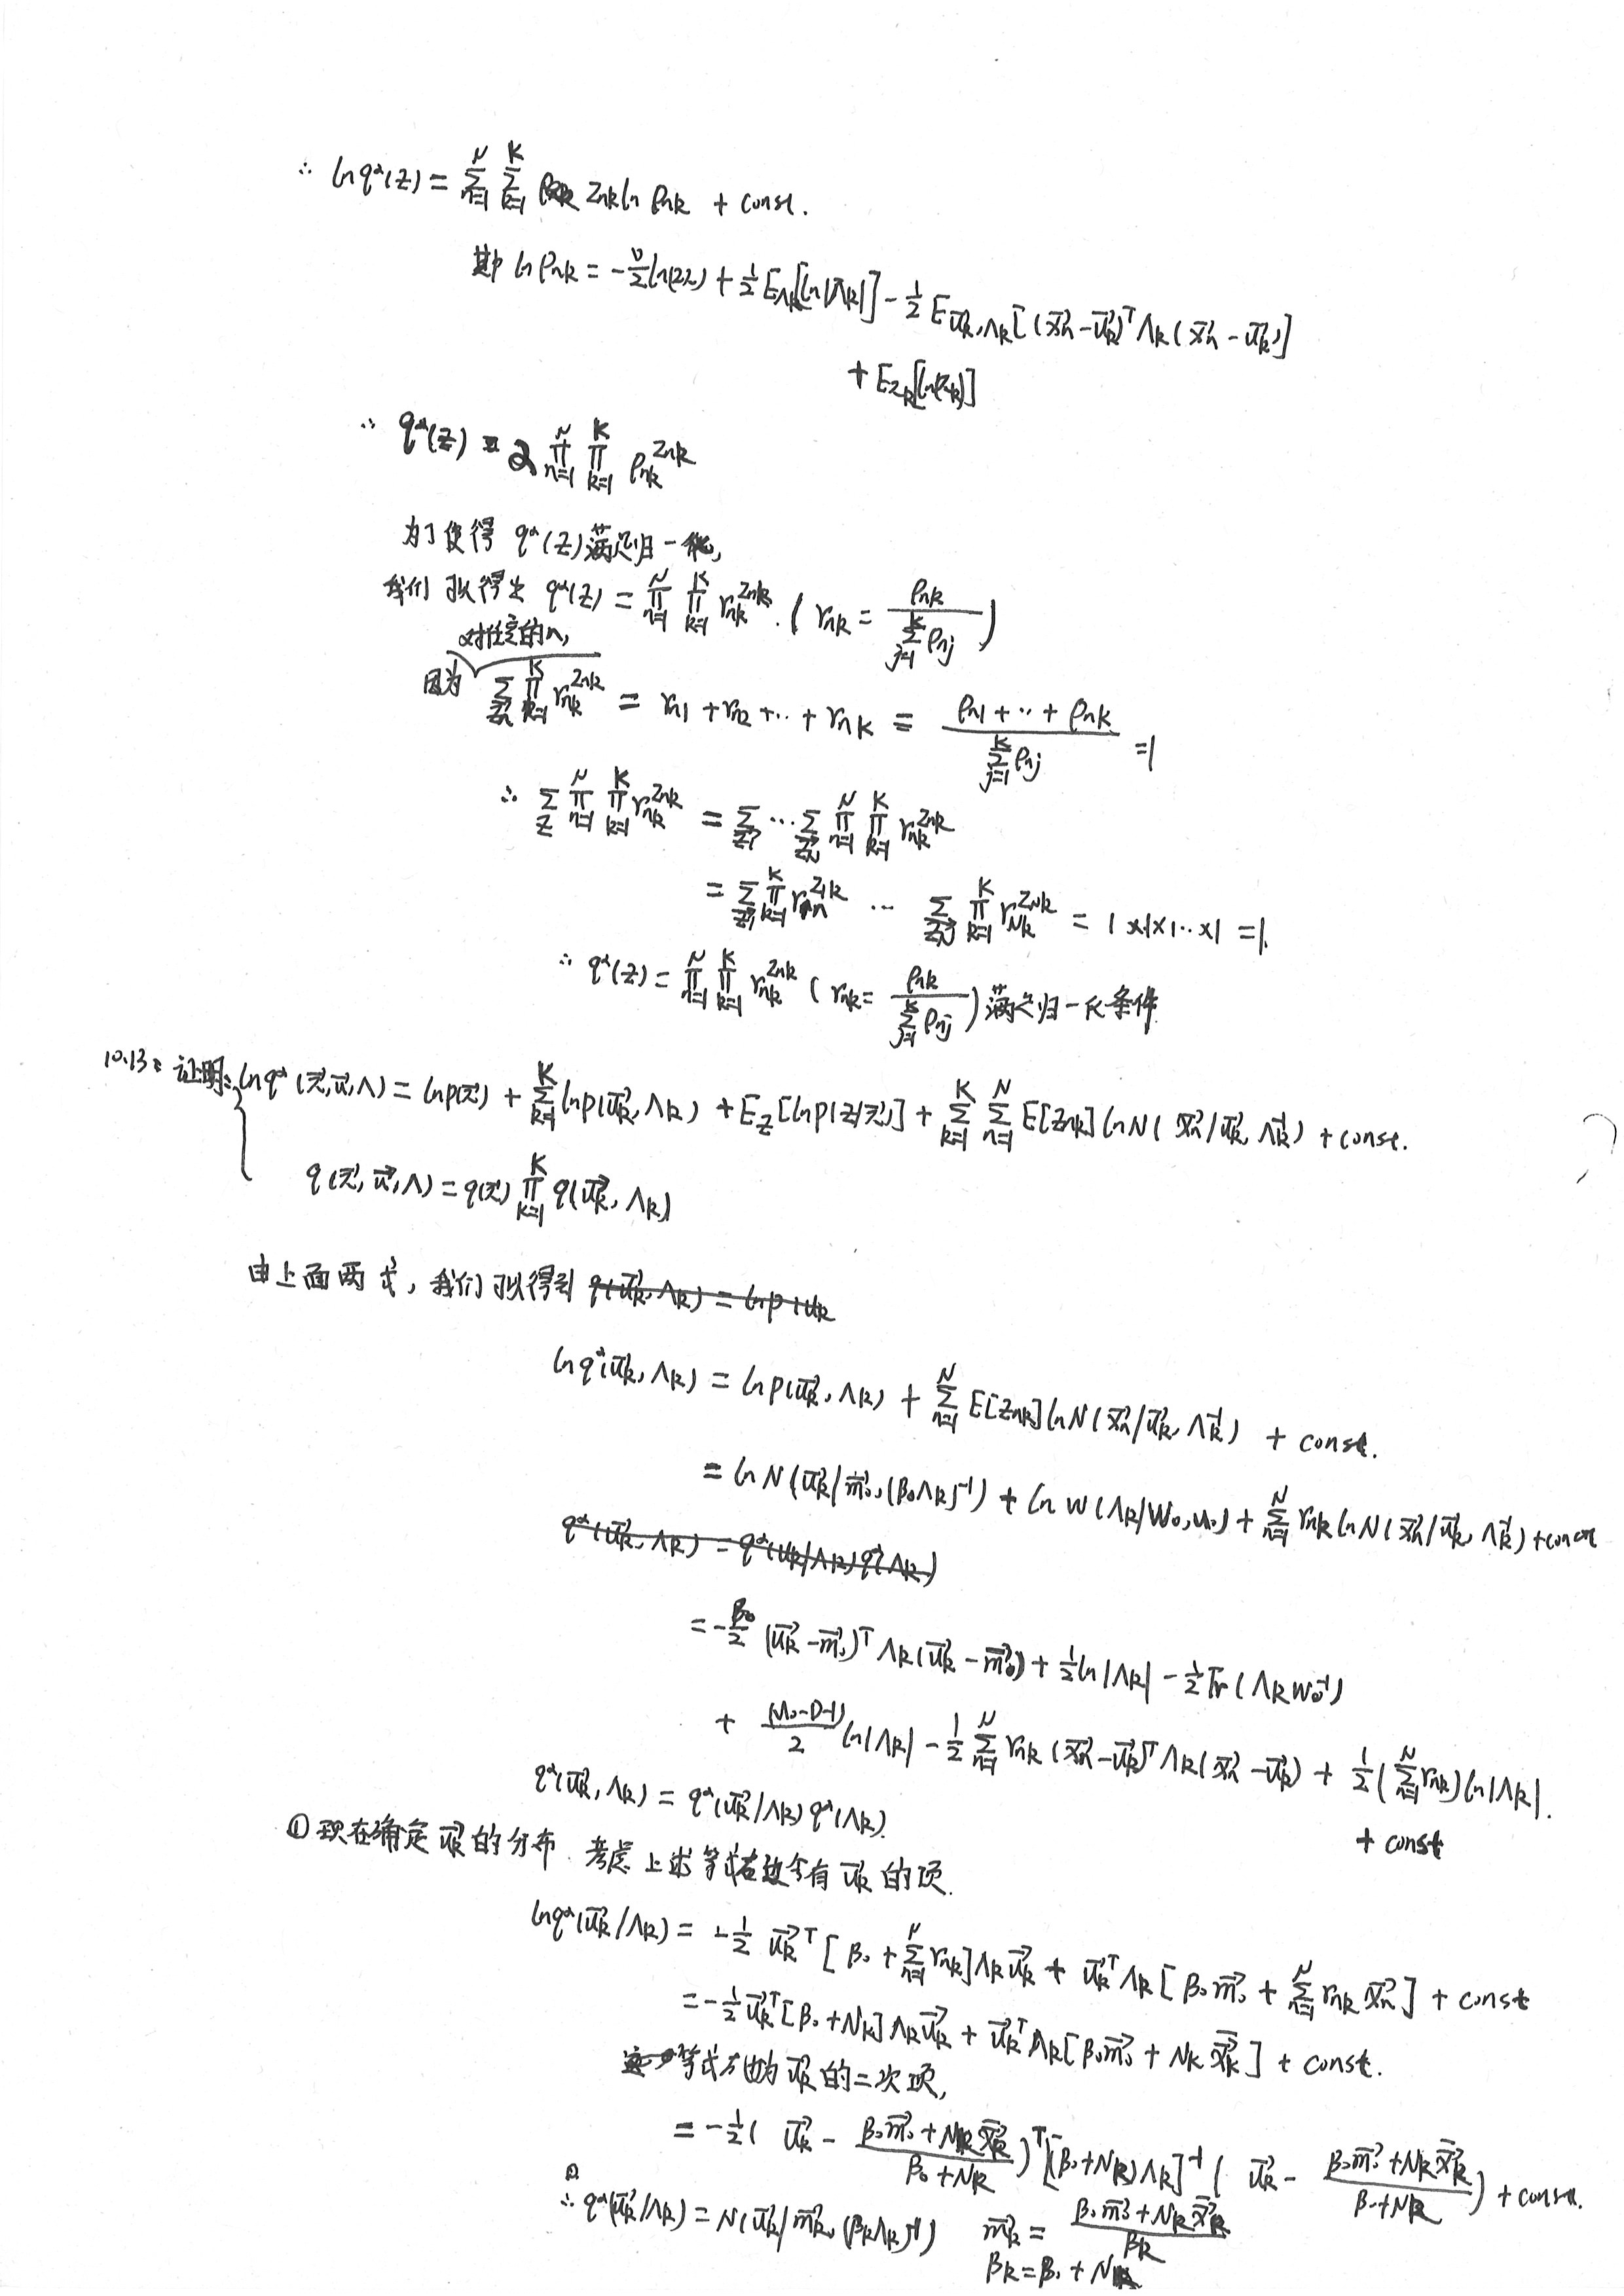 ∴ ln q*(Z) = Σ_{n=1}^{N} Σ_{k=1}^{K} Z_{nk} ln ρ_{nk} + const.
其中 ln ρ_{nk} = -D/2 ln(2π) + 1/2 E_{Λk}[ln|Λk|] - 1/2 E_{μ⃗k,Λk}[(x⃗n - μ⃗k)^T Λk (x⃗n - μ⃗k)]
+ E_{πk}[ln πk]
∴ q*(Z) = α ∏_{n=1}^{N} ∏_{k=1}^{K} ρ_{nk}^{Z_{nk}}
为了使得 q*(Z) 满足归一化,
我们可以得出 q*(Z) = ∏_{n=1}^{N} ∏_{k=1}^{K} r_{nk}^{Z_{nk}}. ( r_{nk} = ρ_{nk} / Σ_{j=1}^{K} ρ_{nj} )
对任意的n,
因为 Σ_{Zn} ∏_{k=1}^{K} r_{nk}^{Z_{nk}} = r_{n1} + r_{n2} + ... + r_{nK} = (ρ_{n1} + ... + ρ_{nK}) / Σ_{j=1}^{K} ρ_{nj} = 1
∴ Σ_Z ∏_{n=1}^{N} ∏_{k=1}^{K} r_{nk}^{Z_{nk}} = Σ_{Z1} ... Σ_{ZN} ∏_{n=1}^{N} ∏_{k=1}^{K} r_{nk}^{Z_{nk}}
= Σ_{Z1} ∏_{k=1}^{K} r_{1k}^{Z_{1k}} ... Σ_{ZN} ∏_{k=1}^{K} r_{Nk}^{Z_{Nk}} = 1×1×1...×1 = 1.
∴ q*(Z) = ∏_{n=1}^{N} ∏_{k=1}^{K} r_{nk}^{Z_{nk}} ( r_{nk} = ρ_{nk} / Σ_{j=1}^{K} ρ_{nj} ) 满足归一化条件
10.13: 证明: ln q*(π⃗, μ⃗, Λ) = ln p(π⃗) + Σ_{k=1}^{K} ln p(μ⃗k, Λk) + E_Z[ln p(Z/π⃗)] + Σ_{k=1}^{K} Σ_{n=1}^{N} E[Z_{nk}] ln N(x⃗n/μ⃗k, Λk^{-1}) + const.
q(π⃗, μ⃗, Λ) = q(π⃗) ∏_{k=1}^{K} q(μ⃗k, Λk)
由上面两式, 我们可以得到
ln q*(μ⃗k, Λk) = ln p(μ⃗k, Λk) + Σ_{n=1}^{N} E[Z_{nk}] ln N(x⃗n/μ⃗k, Λk^{-1}) + const.
= ln N(μ⃗k/m⃗0, (β0Λk)^{-1}) + ln W(Λk/W0, ν0) + Σ_{n=1}^{N} r_{nk} ln N(x⃗n/μ⃗k, Λk^{-1}) + const
= -β0/2 (μ⃗k - m⃗0)^T Λk (μ⃗k - m⃗0) + 1/2 ln|Λk| - 1/2 Tr(Λk W0^{-1})
+ (ν0-D-1)/2 ln|Λk| - 1/2 Σ_{n=1}^{N} r_{nk} (x⃗n - μ⃗k)^T Λk (x⃗n - μ⃗k) + 1/2 (Σ_{n=1}^{N} r_{nk}) ln|Λk|.
+ const
q*(μ⃗k, Λk) = q*(μ⃗k/Λk) q*(Λk).
① 现在确定 μ⃗k 的分布. 考虑上述等式右边含有 μ⃗k 的项.
ln q*(μ⃗k/Λk) = -1/2 μ⃗k^T [β0 + Σ_{n=1}^{N} r_{nk}] Λk μ⃗k + μ⃗k^T Λk [β0 m⃗0 + Σ_{n=1}^{N} r_{nk} x⃗n] + const
= -1/2 μ⃗k^T [β0 + Nk] Λk μ⃗k + μ⃗k^T Λk [β0 m⃗0 + Nk x̄⃗k] + const.
等式右边为 μ⃗k 的二次项,
= -1/2 ( μ⃗k - (β0 m⃗0 + Nk x̄⃗k)/(β0 + Nk) )^T [(β0+Nk)Λk]^{-1} ( μ⃗k - (β0 m⃗0 + Nk x̄⃗k)/(β0+Nk) ) + const.
∴ q*(μ⃗k/Λk) = N(μ⃗k/m⃗k, (βkΛk)^{-1}) m⃗k = (β0 m⃗0 + Nk x̄⃗k)/βk
βk = β0 + Nk